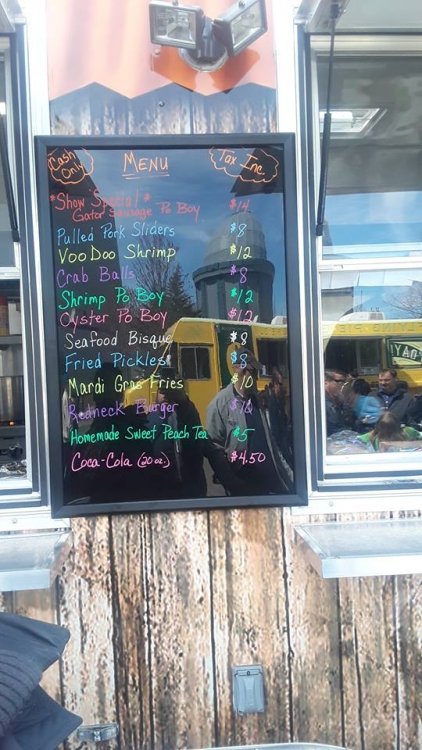 Cash Only
MENU
Tax Inc.
*Show Special* $14
Gator Sausage Po Boy
Pulled Pork Sliders $8
VooDoo Shrimp $12
Crab Balls $8
Shrimp Po Boy $12
Oyster Po Boy $12
Seafood Bisque $8
Fried Pickles $8
Mardi Gras Fries $10
Redneck Burger
Homemade Sweet Peach Tea $5
Coca-Cola (20oz.) $4.50